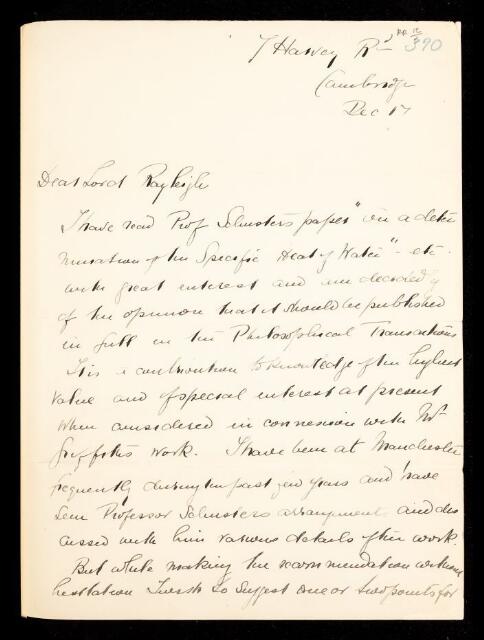 7 Harvey Rd
RR 12
390
Cambridge
Dec 17
Dear Lord Rayleigh
I have read Prof Schuster's paper "on a deter
mination of the Specific Heat of Water" - etc.
with great interest and am decidedly
of the opinion that it should be published
in full in the Philosophical Transactions
It is a contribution to knowledge of the highest
value and of special interest at present
when considered in connexion with Mr
Griffiths work. I have been at Manchester
frequently during the past years and have
seen Professor Schusters arrangements and dis
cussed with him various details of the work.
But while making the recommendation without
hesitation I wish to suggest one or two points for